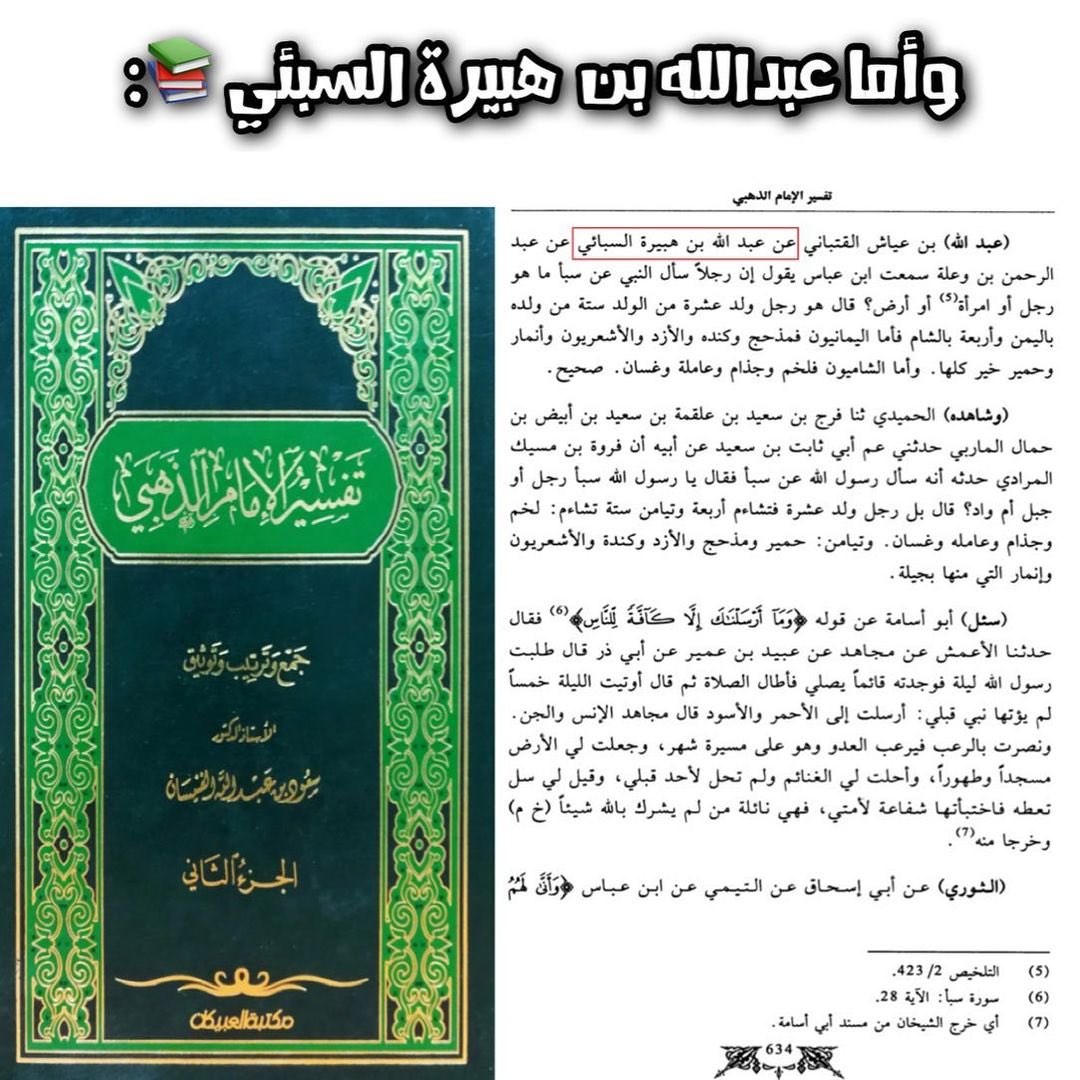 وأما عبدالله بن هبيرة السبئي 📚:
تفسير الإمام الذهبي
جمع وترتيب وتوثيق
الأستاذ الدكتور
سعود بن عبد الله الفنيسان
الجزء الثاني
مكتبة العبيكان
تفسير الإمام الذهبي
(عبد الله) بن عياش القتباني عن عبد الله بن هبيرة السبائي عن عبد
الرحمن بن وعلة سمعت ابن عباس يقول إن رجلاً سأل النبي عن سبأ ما هو
رجل أو امرأة(5) أو أرض؟ قال هو رجل ولد عشرة من الولد ستة من ولده
باليمن وأربعة بالشام فأما اليمانيون فمذحج وكنده والأزد والأشعريون وأنمار
وحمير خير كلها. وأما الشاميون فلخم وجذام وعاملة وغسان. صحيح.
(وشاهده) الحميدي ثنا فرج بن سعيد بن علقمة بن سعيد بن أبيض بن
حمال الماربي حدثني عم أبي ثابت بن سعيد عن أبيه أن فروة بن مسيك
المرادي حدثه أنه سأل رسول الله عن سبأ فقال يا رسول الله سبأ رجل أو
جبل أم واد؟ قال بل رجل ولد عشرة فتشاءم أربعة وتيامن ستة تشاءم: لخم
وجذام وعامله وغسان. وتيامن: حمير ومذحج والأزد وكندة والأشعريون
وإنمار التي منها بجيلة.
(سئل) أبو أسامة عن قوله ﴿وَمَآ أَرْسَلْنَٰكَ إِلَّا كَآفَّةً لِّلنَّاسِ﴾(6) فقال
حدثنا الأعمش عن مجاهد عن عبيد بن عمير عن أبي ذر قال طلبت
رسول الله ليلة فوجدته قائماً يصلي فأطال الصلاة ثم قال أوتيت الليلة خمساً
لم يؤتها نبي قبلي: أرسلت إلى الأحمر والأسود قال مجاهد الإنس والجن.
ونصرت بالرعب فيرعب العدو وهو على مسيرة شهر، وجعلت لي الأرض
مسجداً وطهوراً، وأحلت لي الغنائم ولم تحل لأحد قبلي، وقيل لي سل
تعطه فاختبأتها شفاعة لأمتي، فهي نائلة من لم يشرك بالله شيئاً (خ م)
وخرجا منه(7).
(الثوري) عن أبي إسحاق عن التيمي عن ابن عباس ﴿وَأَنَّىٰ لَهُمُ
(5) التلخيص 2/ 423.
(6) سورة سبأ: الآية 28.
(7) أي خرج الشيخان من مسند أبي أسامة.
634